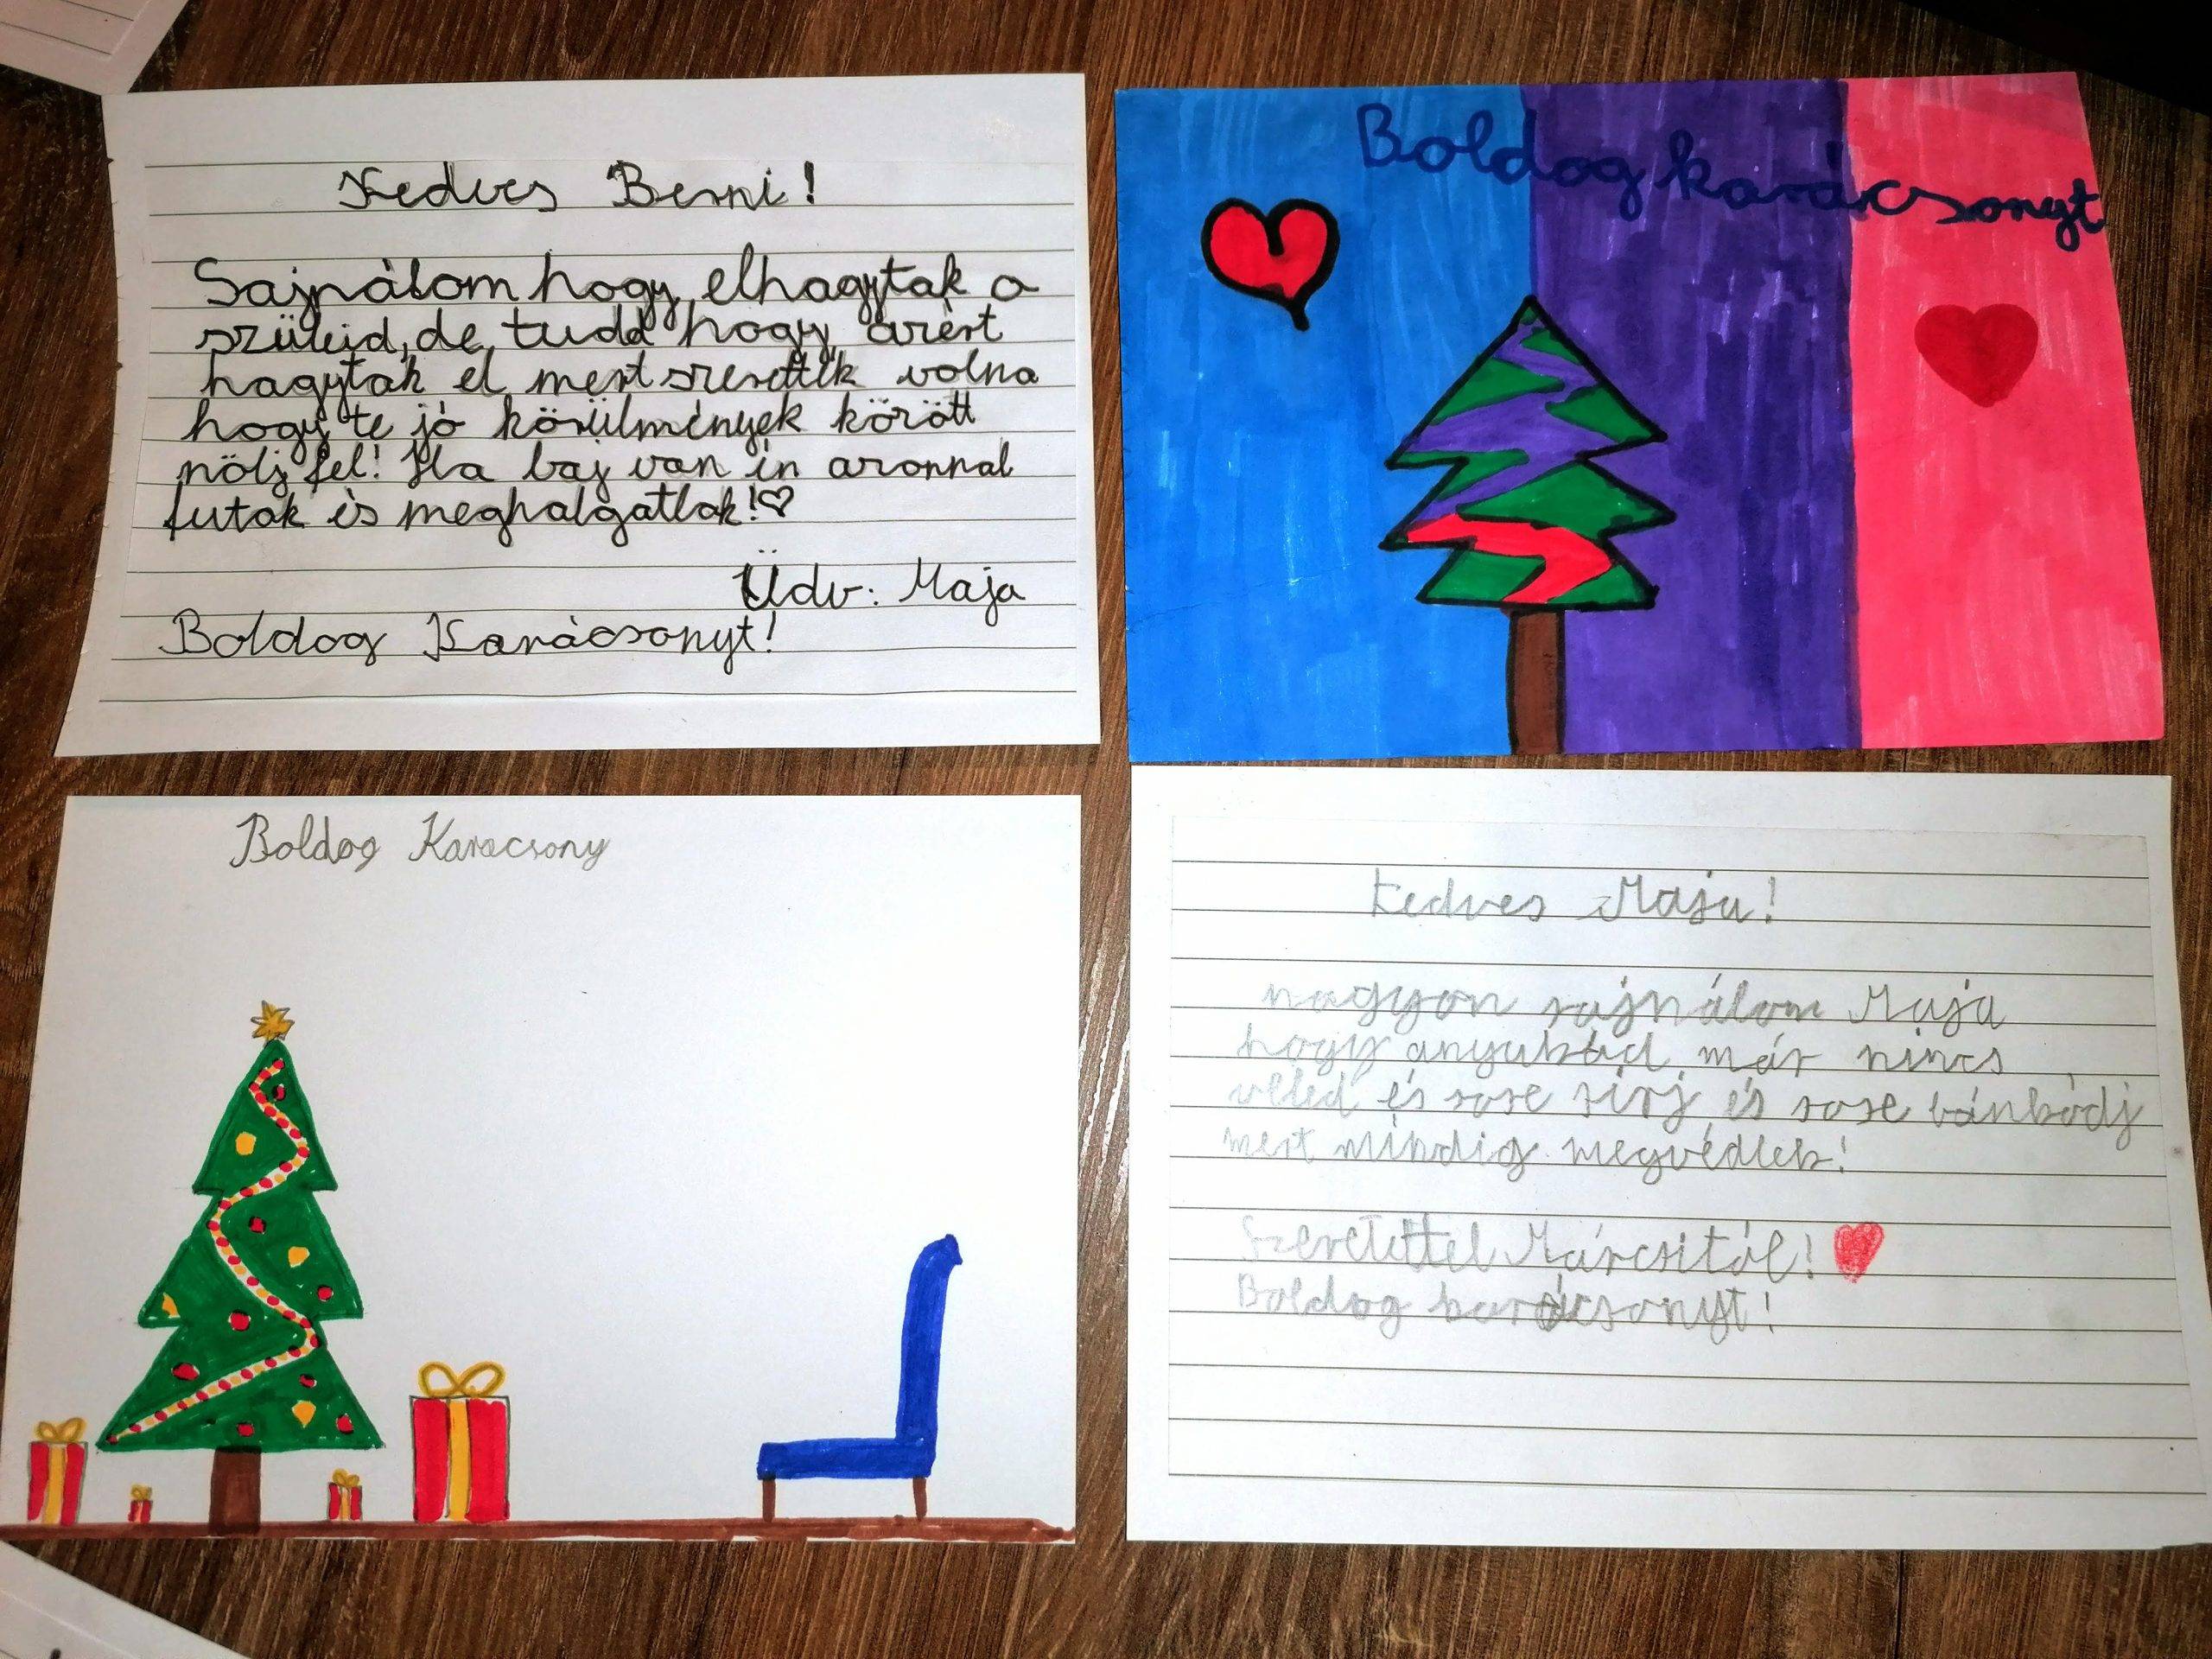 Kedves Berni!
Sajnálom hogy elhagytak a
szüleid, de tudd hogy azért
hagytak el mert szerették volna
hogy te jó körülmények között
nőlj fel! Ha baj van én azonnal
futok és meghalgatlak!♡
Üdv: Maja
Boldog Karácsonyt!
Boldog karácsonyt
Boldog Karacsony
Kedves Maja!
nagyon sajnálom Maja
hogy anyukád már nincs
veled és sose sírj és sose bánkódj
mert mindig megvédlek!
Szeretettel Márcsitól!
Boldog karácsonyt!